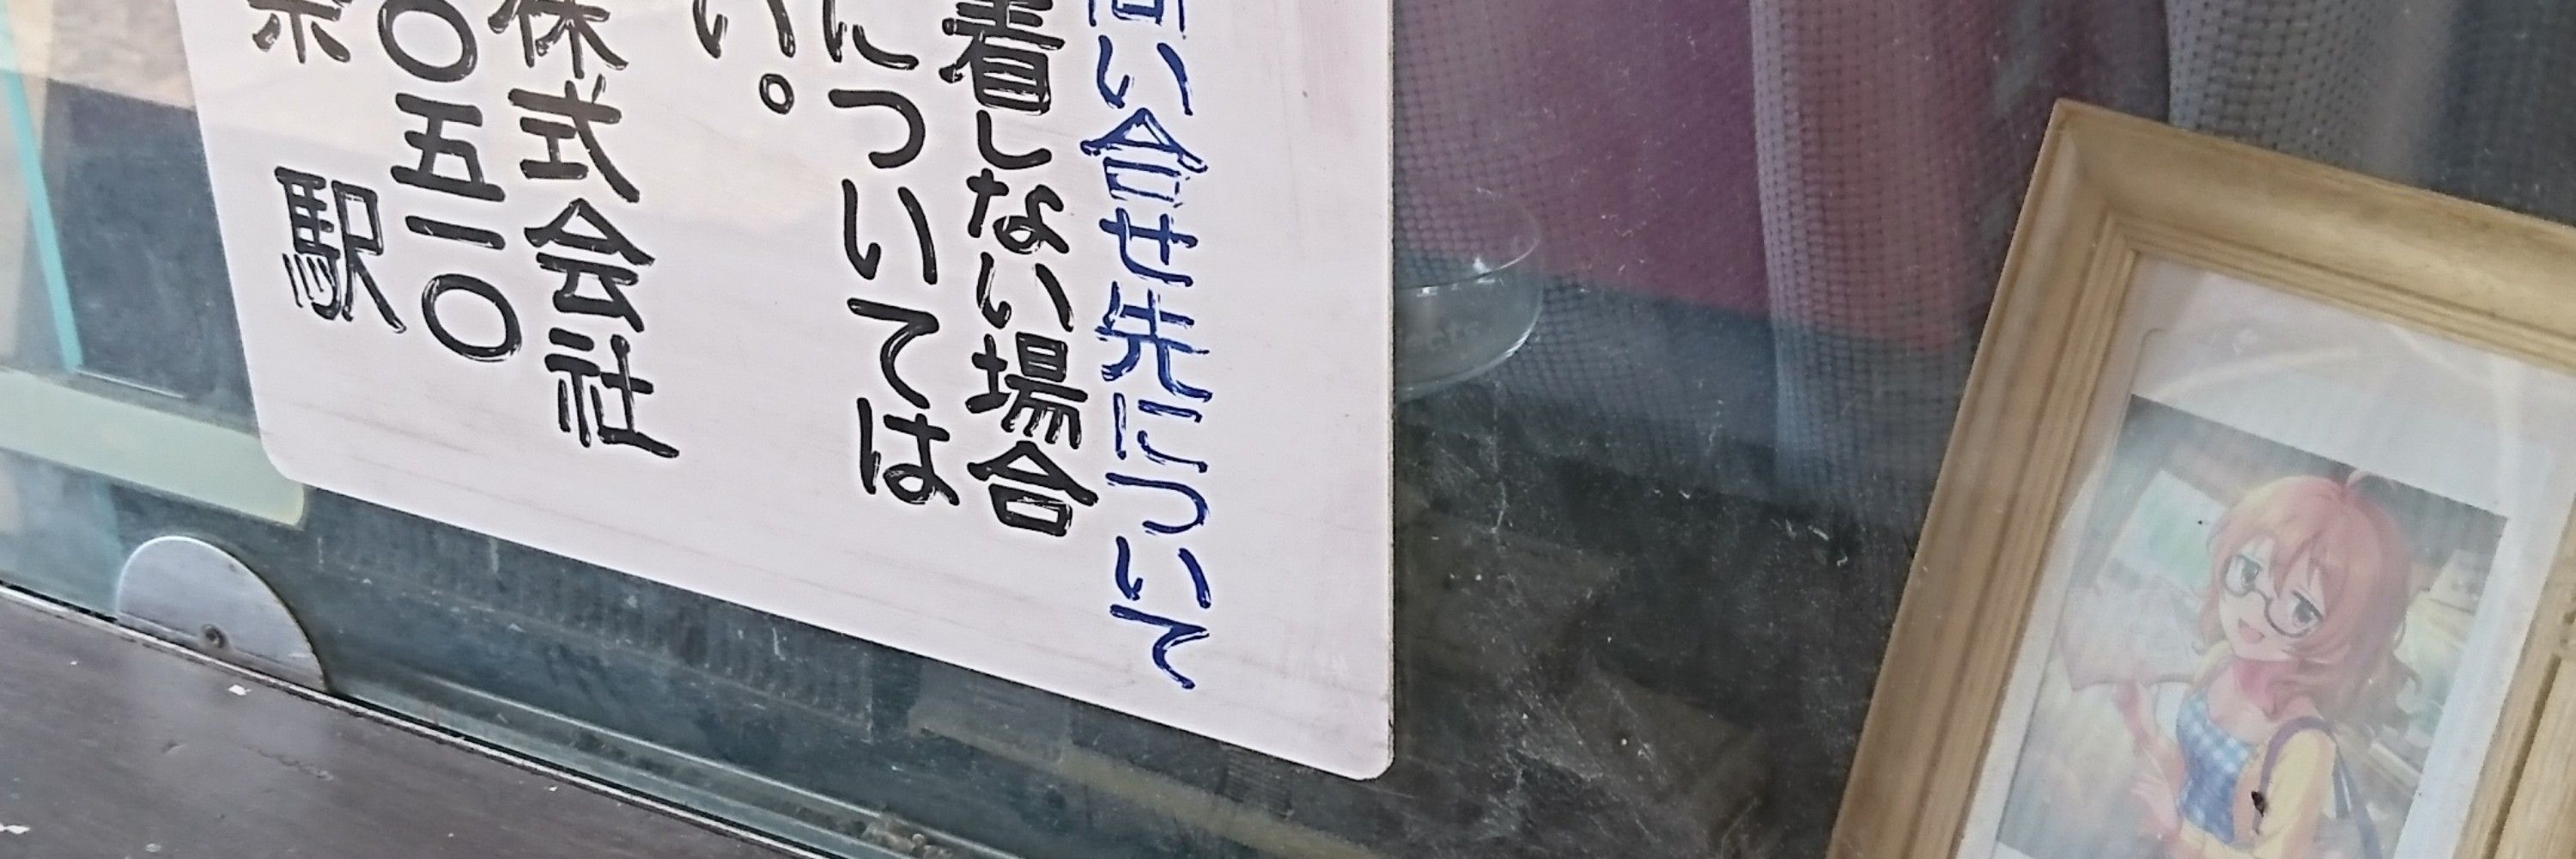 問い合せ先について
着しない場合
については
い。
株式会社
〇五一〇
奈 駅